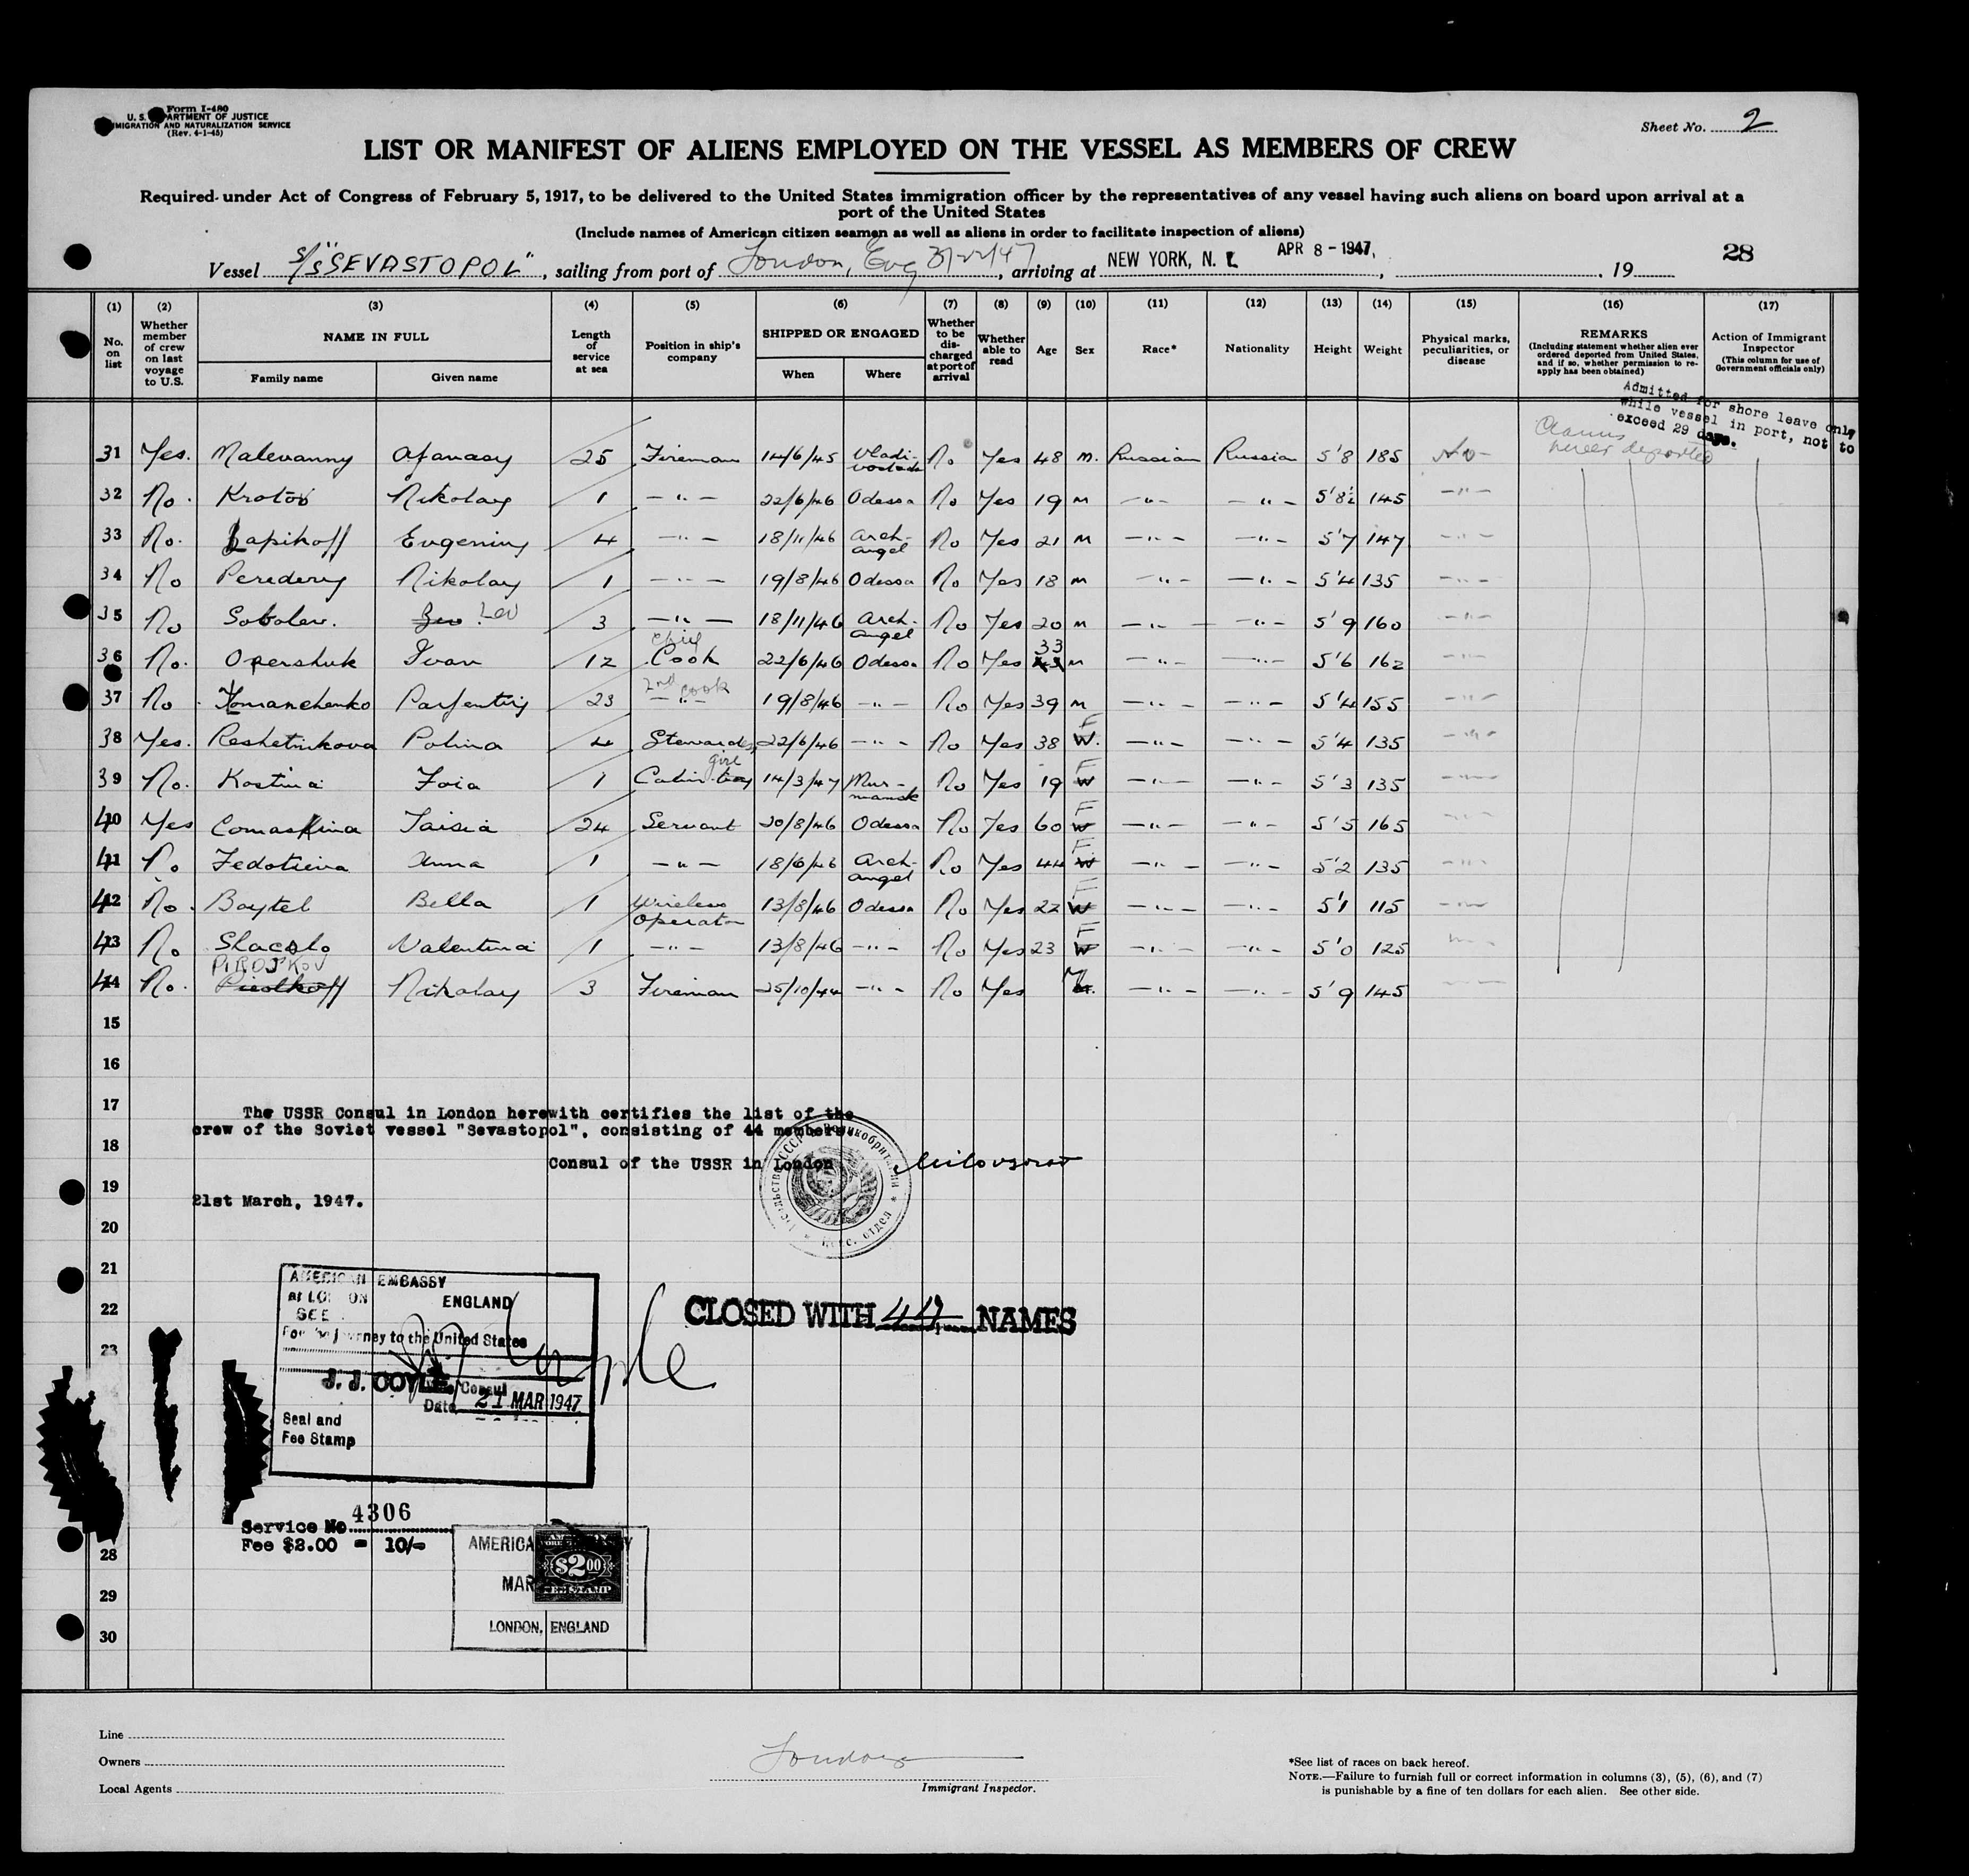 Form I-480
U. S. DEPARTMENT OF JUSTICE
IMMIGRATION AND NATURALIZATION SERVICE
(Rev. 4-1-45)
Sheet No. 2
LIST OR MANIFEST OF ALIENS EMPLOYED ON THE VESSEL AS MEMBERS OF CREW
Required under Act of Congress of February 5, 1917, to be delivered to the United States immigration officer by the representatives of any vessel having such aliens on board upon arrival at a
port of the United States
(Include names of American citizen seamen as well as aliens in order to facilitate inspection of aliens)
28
Vessel S/S "SEVASTOPOL", sailing from port of London, Eng 3/22/47, arriving at NEW YORK, N. Y. APR 8 - 1947, , 19
(1) (2) (3) (4) (5) (6) (7) (8) (9) (10) (11) (12) (13) (14) (15) (16) (17)
No. on list
Whether member of crew on last voyage to U.S.
NAME IN FULL
Family name
Given name
Length of service at sea
Position in ship's company
SHIPPED OR ENGAGED
When
Where
Whether to be discharged at port of arrival
Whether able to read
Age
Sex
Race*
Nationality
Height
Weight
Physical marks, peculiarities, or disease
REMARKS
(Including statement whether alien ever ordered deported from United States, and if so, whether permission to re-apply has been obtained)
Action of Immigrant Inspector
(This column for use of Government officials only)
Admitted for shore leave only
while vessel in port, not to
exceed 29 days.
never deported
31 Yes. Malevanny Afanasy 25 Fireman 14/6/45 Vladi-vostock No Yes 48 m. Russian Russian 5'8 185 No
32 No. Krotov Nikolay 1 - " - 22/6/46 Odessa No Yes 19 m - " - - " - 5'8½ 145 - " -
33 No. Lapikoff Evgeniny 4 - " - 18/11/46 Arch-angel No Yes 21 m - " - - " - 5'7 147 - " -
34 No Peredery Nikolay 1 - " - 19/8/46 Odessa No Yes 18 m - " - - " - 5'4 135 - " -
35 No Sobolev. Lev 3 - " - 18/11/46 Arch-angel No Yes 20 m - " - - " - 5'9 160 - " -
36 No. Opershuk Ivan 12 chief Cook 22/6/46 Odessa No Yes 33 m - " - - " - 5'6 162 - " -
37 No Tomanchenko Parfentiy 23 2nd cook - " - 19/8/46 - " - No Yes 39 m - " - - " - 5'4 155 - " -
38 Yes. Reshetnikova Polina 4 Stewardes 22/6/46 - " - No Yes 38 W. F - " - - " - 5'4 135 - " -
39 No. Kostina Zoia 1 Cabin boy girl 14/3/47 Mur-mansk No Yes 19 W F - " - - " - 5'3 135 - " -
40 Yes Comaskina Taisia 24 Servant 20/8/46 Odessa No Yes 60 W F - " - - " - 5'5 165 - " -
41 No Fedotieva Anna 1 - " - 18/6/46 Arch-angel No Yes 44 W F - " - - " - 5'2 135 - " -
42 No. Baytel Bella 1 Wireless Operator 13/8/46 Odessa No Yes 22 W F - " - - " - 5'1 115 - " -
43 No Valentina 1 - " - 13/8/46 - " - No Yes 23 W F - " - - " - 5'0 125 - " -
44 No. PIROJKOV Nikolay 3 Fireman 25/10/44 - " - No Yes M - " - - " - 5'9 145 - " -
15
16
17
The USSR Consul in London herewith certifies the list of the
crew of the Soviet vessel "Sevastopol", consisting of 44 members.
18
Consul of the USSR in London
19
21st March, 1947.
20
21
AMERICAN EMBASSY
at LONDON ENGLAND
SEEN
For the journey to the United States
22
CLOSED WITH 44 NAMES
23
J. J. COYLE
Vice Consul
Date 21 MAR 1947
Seal and
Fee Stamp
Service No 4306
Fee $2.00 = 10/-
AMERICAN
$2.00
FEE STAMP
MAR
LONDON, ENGLAND
28
29
30
Line
Owners
Local Agents
Immigrant Inspector.
*See list of races on back hereof.
NOTE.—Failure to furnish full or correct information in columns (3), (5), (6), and (7)
is punishable by a fine of ten dollars for each alien. See other side.